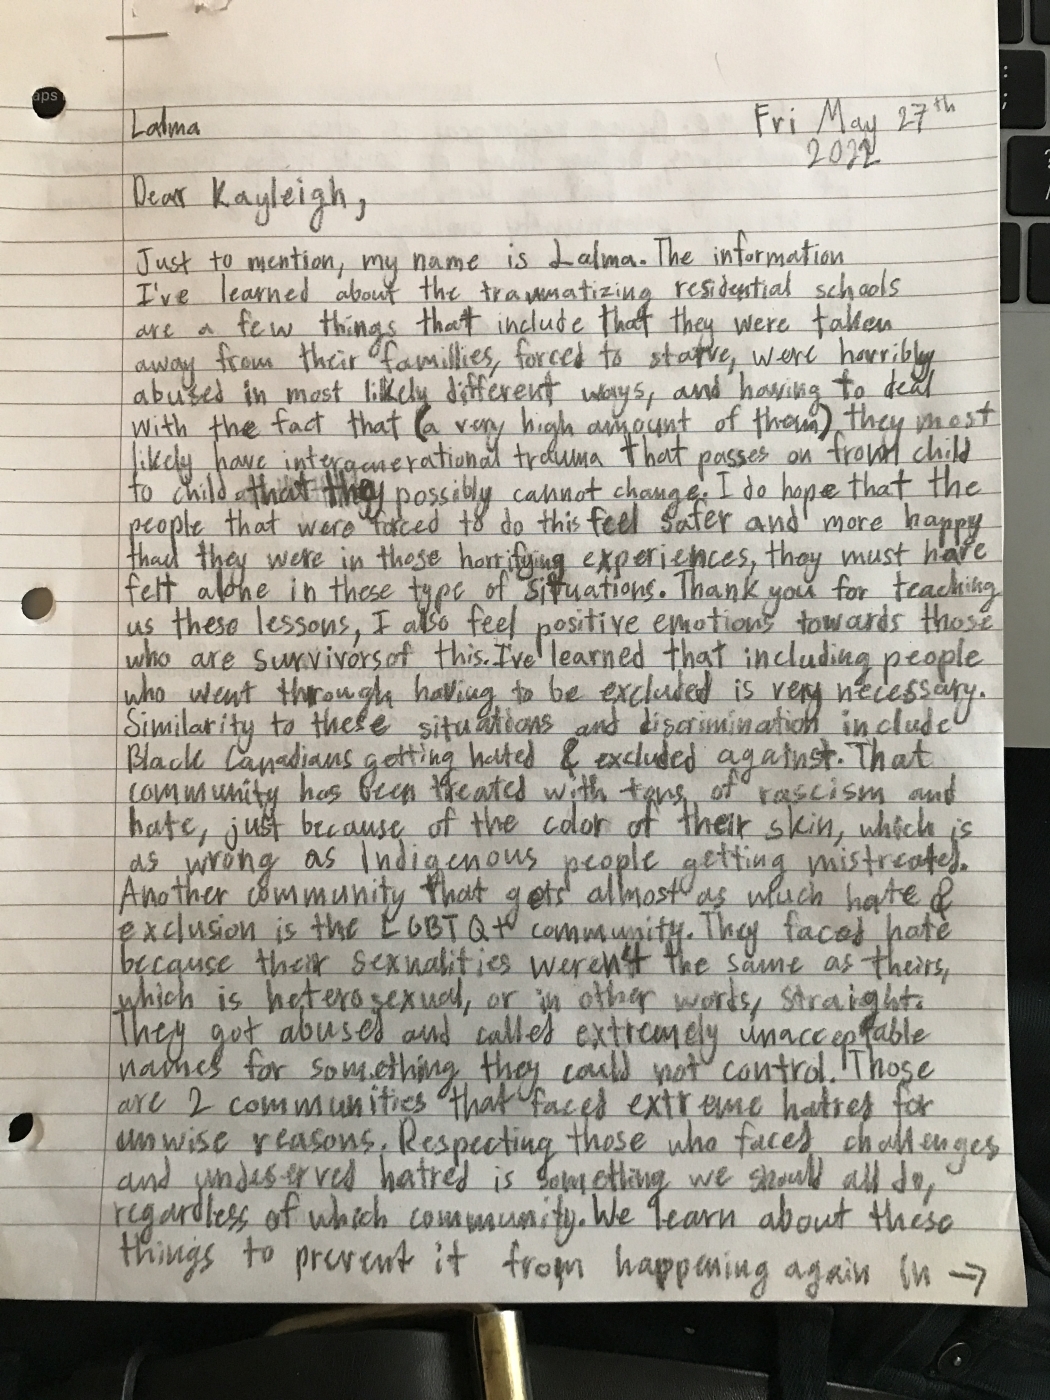 Lalma
Fri May 27th
2022
Dear Kayleigh,
Just to mention, my name is Lalma. The information
I've learned about the traumatizing residential schools
are a few things that include that they were taken
away from their famillies, forced to starve, were horribly
abused in most likely different ways, and having to deal
with the fact that (a very high amount of them) they most
likely have intergenerational trauma that passes on from child
to child that they possibly cannot change. I do hope that the
people that were forced to do this feel safer and more happy
than they were in these horrifying experiences, they must have
felt alone in these type of situations. Thank you for teaching
us these lessons, I also feel positive emotions towards those
who are survivors of this. I've learned that including people
who went through having to be excluded is very necessary.
Similarity to these situations and discrimination include
Black Canadians getting hated & excluded against. That
community has been treated with tons of rascism and
hate, just because of the color of their skin, which is
as wrong as Indigenous people getting mistreated.
Another community that gets allmost as much hate &
exclusion is the LGBTQ+ community. They faced hate
because their sexualities weren't the same as theirs,
which is heterosexual, or in other words, straight.
They got abused and called extremely unacceptable
names for something they could not control. Those
are 2 communities that faced extreme hatred for
unwise reasons. Respecting those who faced challenges
and undeserved hatred is something we should all do,
regardless of which community. We learn about these
things to prevent it from happening again in →